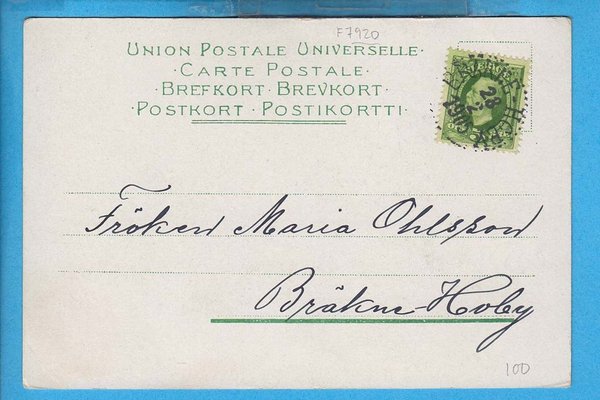 F7920
UNION POSTALE UNIVERSELLE·
·CARTE POSTALE·
·BREFKORT·BREVKORT·
·POSTKORT·POSTIKORTTI·
SVERIGE
28
Fröken Maria Ohlsson
Bräkne-Hoby
100